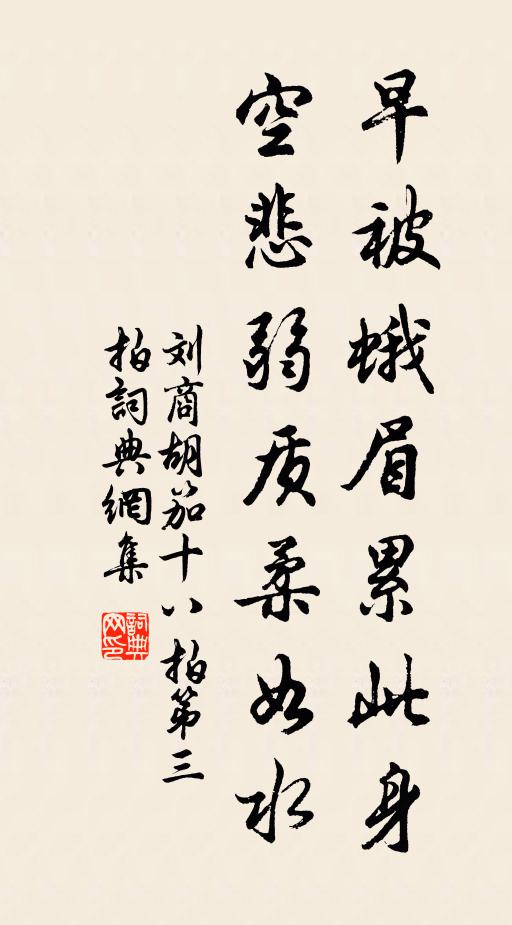 早被蛾眉累此身
空悲弱质柔如水
刘商胡笳十八拍第三
拍詞典網集
詞典
网印